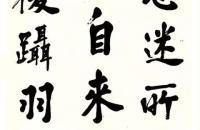 迷所
自来
躡羽